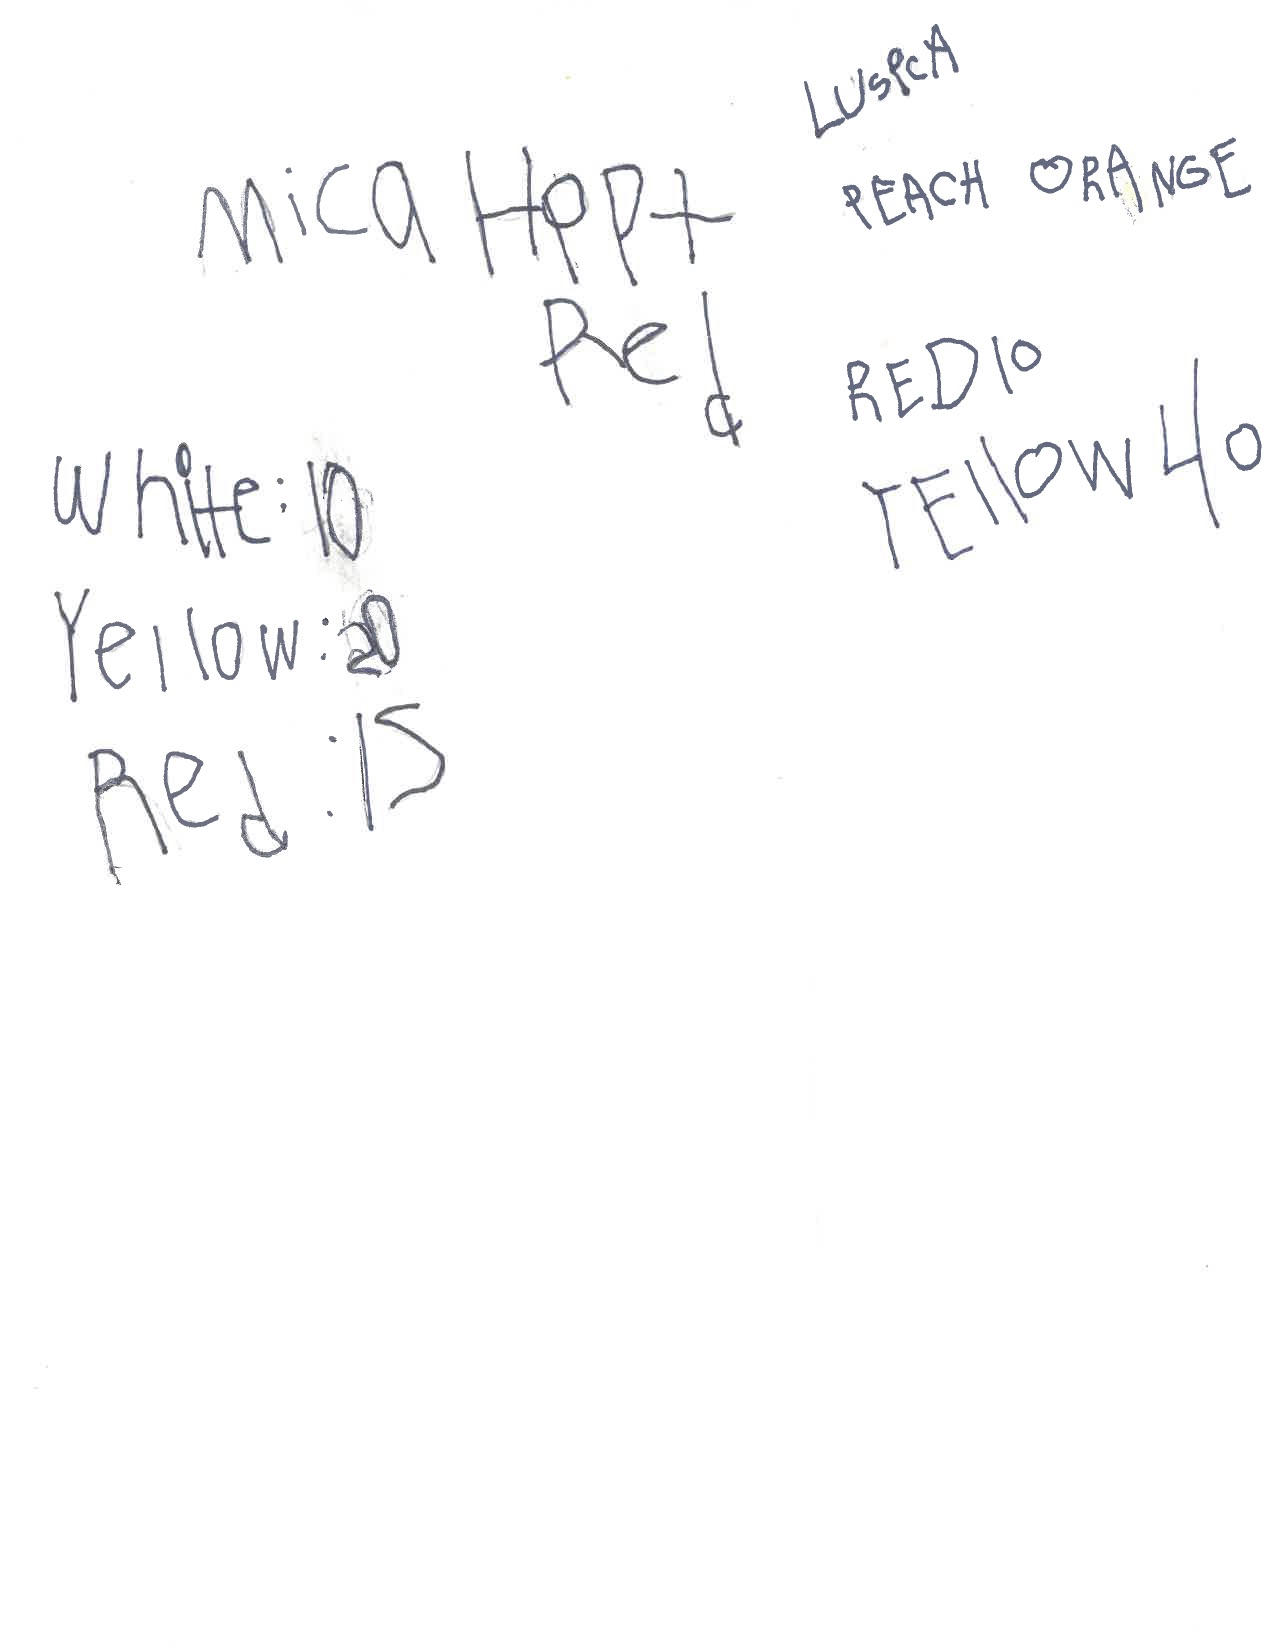 Mica Hopt
Red
White:10
Yellow:20
Red:15
LUsPcA
PEACH ORANGE
RED10
YEllOW 40